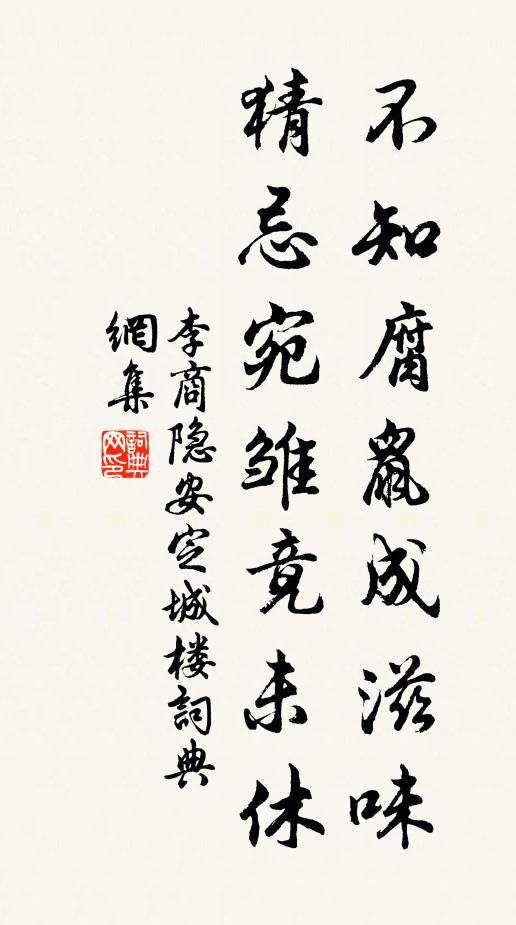 不知腐鼠成滋味
猜忌宛雏竟未休
李商隐安定城楼詞典
網集
詞典
网印